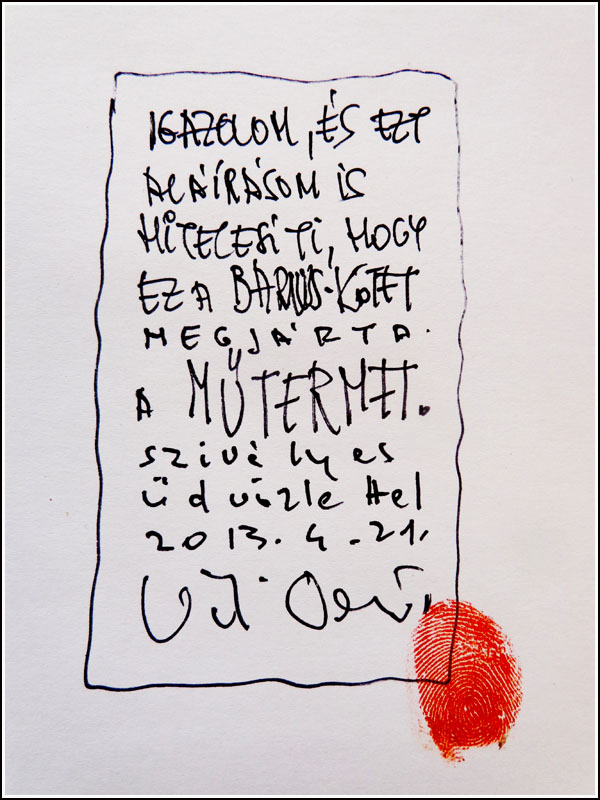 IGAZOLOM, ÉS EZT
ALÁÍRÁSOM IS
HITELESÍTI, HOGY
EZ A BARNUS-KÖTET
MEGJÁRTA
A MŰTERMET.
szívélyes
üdvözlettel
2013. 4. 21.